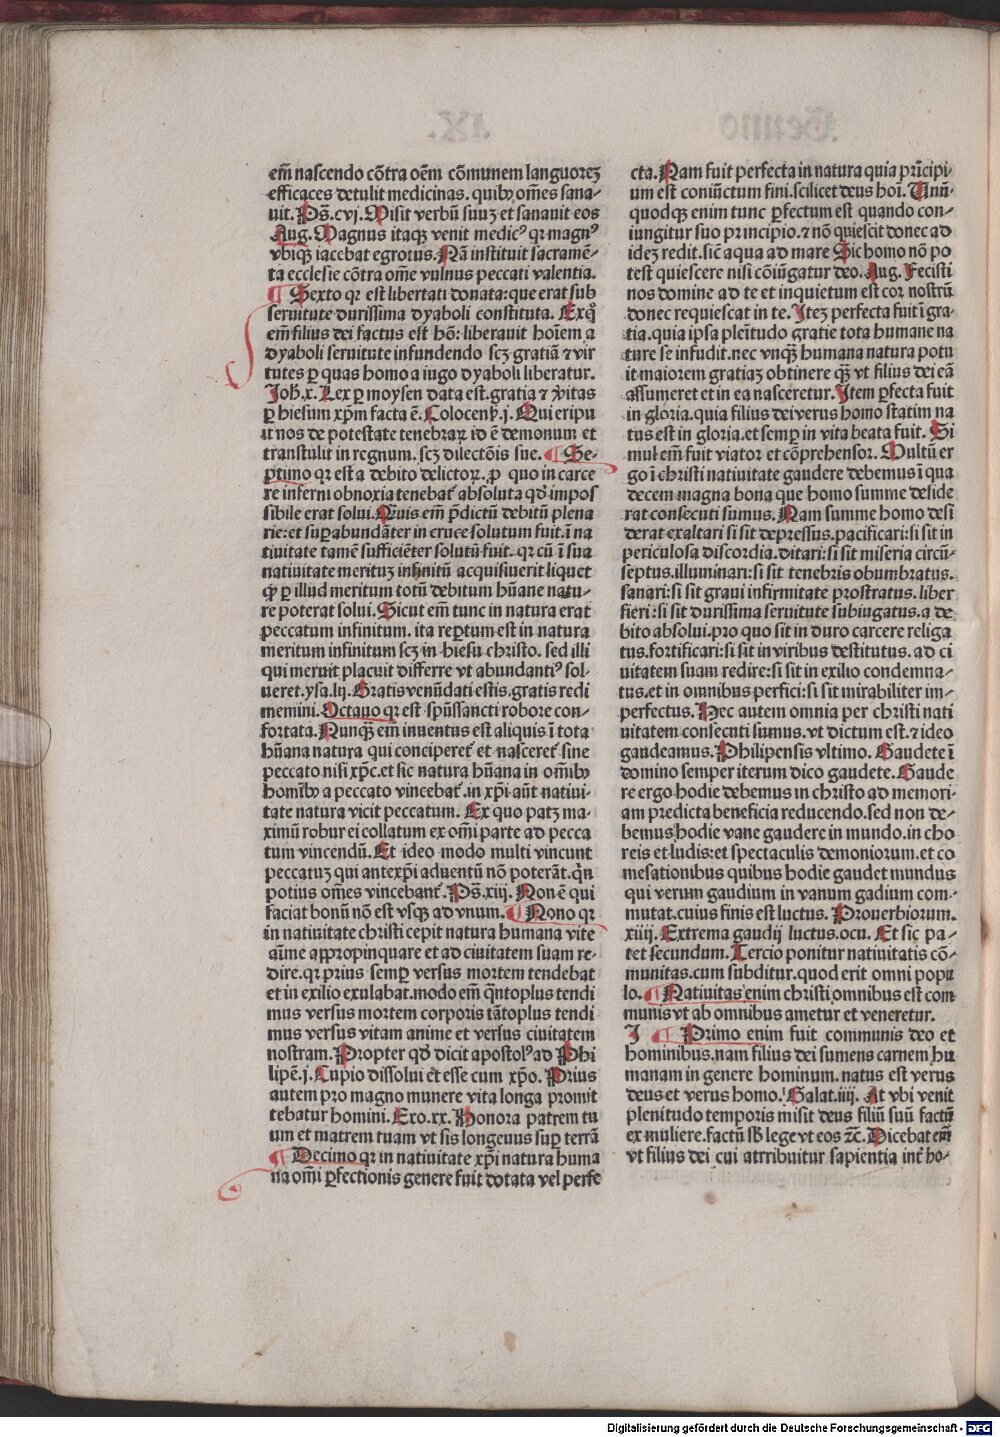 em̄ nascendo cōtra oēm cōmunem languorez
efficaces detulit medicinas. quibꝰ om̄es sana⸗
uit. Ps̄. cvj. Misit verbū suuz et sanauit eos
Aug. Magnus itaqꝫ venit medicꝰ qꝛ magnꝰ
vbiqꝫ iacebat egrotus. Nā instituit sacramē⸗
ta ecclesie cōtra om̄e vulnus peccati valentia.
¶ Sexto qꝛ est libertati donata: que erat sub
seruitute durissima dyaboli constituta. Exq̄
em̄ filius dei factus est hō: liberauit hoīem a
dyaboli seruitute infundendo scꝫ gratiā ⁊ vir
tutes ꝑ quas homo a iugo dyaboli liberatur.
Joh̄. x. Lex ꝑ moysen data est. gratia ⁊ v̄itas
ꝑ hiesum xp̄m facta ē. Colocen̄. j. Qui eripu
it nos de potestate tenebraꝝ id ē demonum et
transtulit in regnum. scꝫ dilectōis sue. ¶ Se⸗
ptimo qꝛ est a debito delictoꝝ. ꝓ quo in carce
re inferni obnoxia tenebat̄ absoluta qd̄ impos
sibile erat solui. Quis em̄ p̄dictū debitū plena
rie: et suꝑabundāter in cruce solutum fuit. ī na
tiuitate tamē sufficiēter solutū fuit. qꝛ cū ī sua
natiuitate merituꝫ infinitū acquisiuerit liquet
ꝙ ꝑ illud meritum totū debitum hūane natu⸗
re poterat solui. Sicut em̄ tunc in natura erat
peccatum infinitum. ita reꝑtum est in natura
meritum infinitum scꝫ in hiesu christo. sed illi
qui meruit placuit differre vt abundantiꝰ sol⸗
ueret. ysa. lij. Gratis venūdati estis. gratis redi
memini. Octauo qꝛ est spūssancti robore con⸗
fortata. Nunqꝫ em̄ inuentus est aliquis ī tota
hūana natura qui conciperet̄ et nasceret̄ sine
peccato nisi xp̄c. et sic natura hūana in om̄ibꝰ
homībꝰ a peccato vincebat̄. in xp̄i aūt natiui⸗
tate natura vicit peccatum. Ex quo patꝫ ma⸗
ximū robur ei collatum ex om̄i parte ad pecca
tum vincendū. Et ideo modo multi vincunt
peccatuꝫ qui antexp̄i aduentū nō poterāt. qn̄
potius om̄es vincebant̄. Ps̄. xiij. Non ē qui
faciat bonū nō est vsqꝫ ad vnum. ¶ Nono qꝛ
in natiuitate christi cepit natura humana vite
aīme appropinquare et ad ciuitatem suam re⸗
dire. qꝛ prius semꝑ versus mortem tendebat
et in exilio exulabat. modo em̄ q̄ntoplus tendi
mus versus mortem corporis tātoplus tendi
mus versus vitam anime et versus ciuitatem
nostram. Propter qd̄ dicit apostolꝰ ad Phi
lipē. j. Cupio dissolui et esse cum xp̄o. Prius
autem pro magno munere vita longa promit
tebatur homini. Exo. xx. Honora patrem tu
um et matrem tuam vt sis longeuus suꝑ terrā
¶ Decimo qꝛ in natiuitate xp̄i natura huma
na om̄i ꝑfectionis genere fuit dotata vel perfe
cta. Nam fuit perfecta in natura quia prīcipi⸗
um est coniūctum fini. scilicet deus hoī. Unū⸗
quodqꝫ enim tunc ꝑfectum est quando con⸗
iungitur suo principio. ⁊ nō quiescit donec ad
ideꝫ redit. sic̄ aqua ad mare Sic homo nō po
test quiescere nisi cōiūgatur deo. Aug. Fecisti
nos domine ad te et inquietum est cor nostrū
donec requiescat in te. Iteꝫ perfecta fuit ī gra⸗
tia. quia ipsa plenītudo gratie tota humane na
ture se infudit. nec vnqꝫ humana natura potu
it maiorem gratiaꝫ obtinere qꝫ vt filius dei eā
assumeret et in ea nasceretur. Item ꝑfecta fuit
in gloria. quia filius dei verus homo statim na
tus est in gloria. et semꝑ in vita beata fuit. Si
mul em̄ fuit viator et cōprehensor. Multū er
go ī christi natiuitate gaudere debemus ī qua
decem magna bona que homo summe deside
rat consecuti sumus. Nam summe homo desi
derat exaltari si sit depressus. pacificari: si sit in
periculosa discordia. ditari: si sit miseria circū⸗
septus. illuminari: si sit tenebris obumbratus.
sanari: si sit graui infirmitate prostratus. liber
fieri: si sit durissima seruitute subiugatus. a de
bito absolui. pro quo sit in duro carcere religa
tus. fortificari: si sit in viribus destitutus. ad ci
uitatem suam redire: si sit in exilio condemna⸗
tus. et in omnibus perfici: si sit mirabiliter im⸗
perfectus. Hec autem omnia per christi nati
uitatem consecuti sumus. vt dictum est. ⁊ ideo
gaudeamus. Philipensis vltimo. Gaudete ī
domino semper iterum dico gaudete. Gaude
re ergo hodie debemus in christo ad memori⸗
am predicta beneficia reducendo. sed non de⸗
bemus hodie vane gaudere in mundo. in cho
reis et ludis: et spectaculis demoniorum. et co
mesationibus quibus hodie gaudet mundus
qui verum gaudium in vanum gadium com⸗
mutat. cuius finis est luctus. Prouerbiorum.
xiiij. Extrema gaudij luctus. ocu. Et sic pa⸗
tet secundum. Tercio ponitur natiuitatis cō⸗
munitas. cum subditur. quod erit omni popu
lo. ¶ Natiuitas enim christi omnibus est com
munis vt ab omnibus ametur et veneretur.
J ¶ Primo enim fuit communis deo et
hominibus. nam filius dei sumens carnem hu
manam in genere hominum. natus est verus
deus et verus homo. Galat. iiij. At vbi venit
plenitudo temporis misit deus filiū suū factū
ex muliere. factū sb̄ lege vt eos ⁊c̄. Dicebat em̄
vt filius dei cui attribuitur sapientia int̄ ho⸗
Digitalisierung gefördert durch die Deutsche Forschungsgemeinschaft - DFG